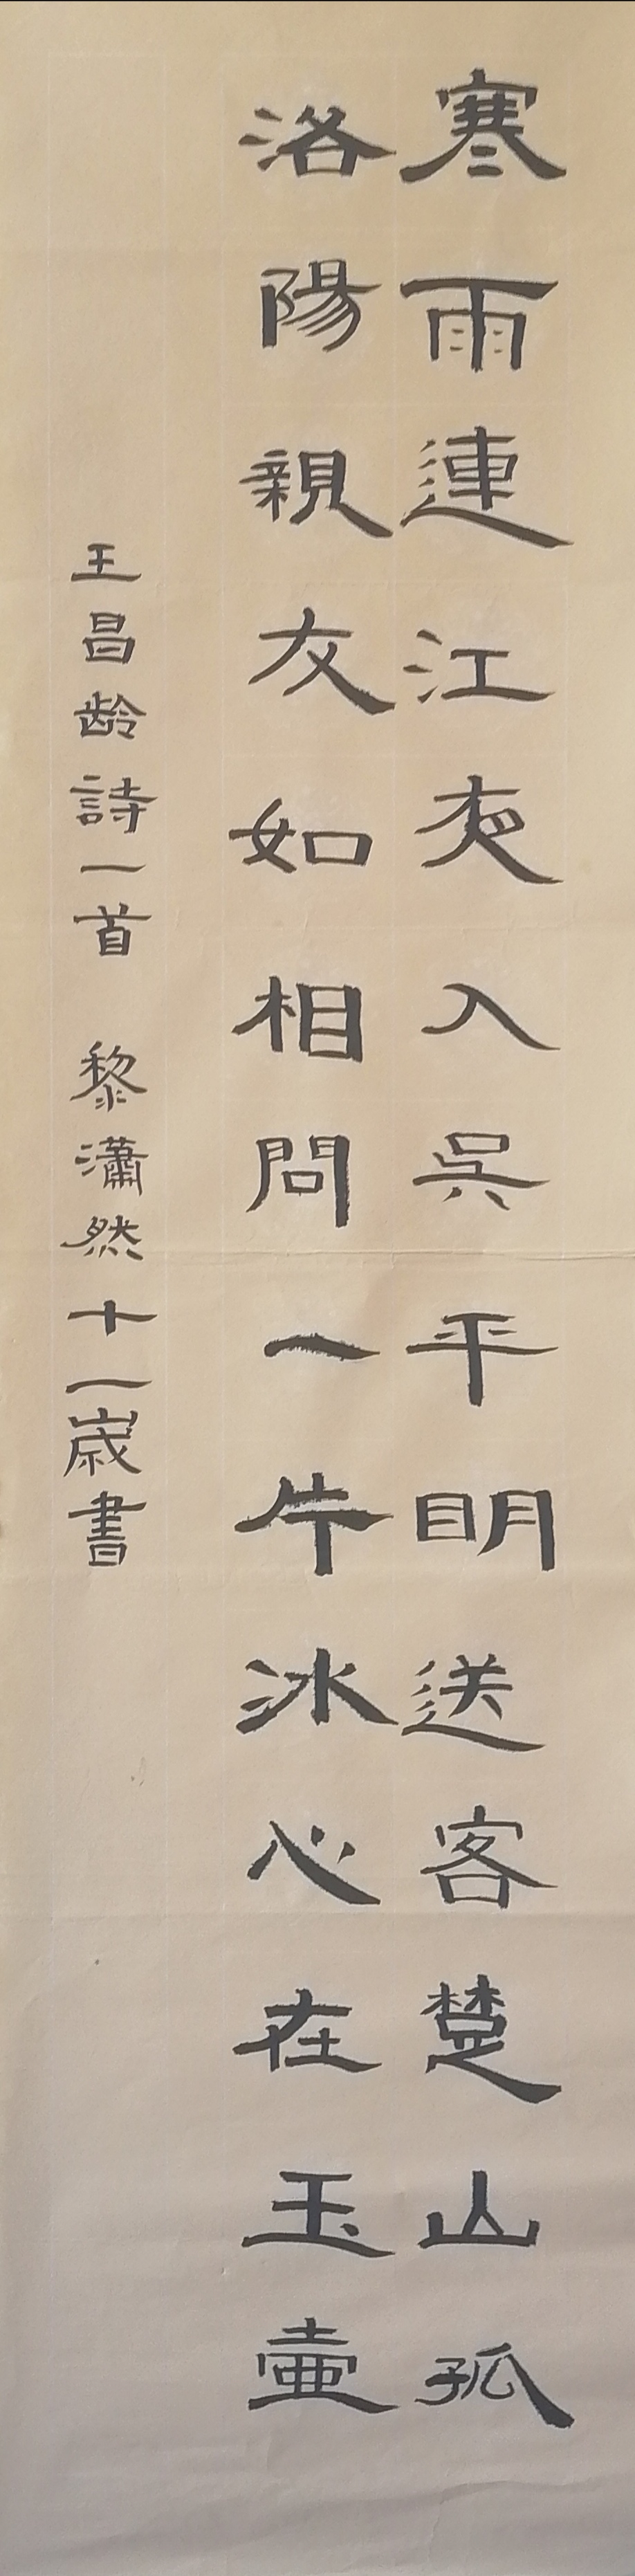 寒雨連江夜入吳平明送客楚山孤
洛陽親友如相問一片冰心在玉壺
王昌龄詩一首 黎瀟然十一歲書